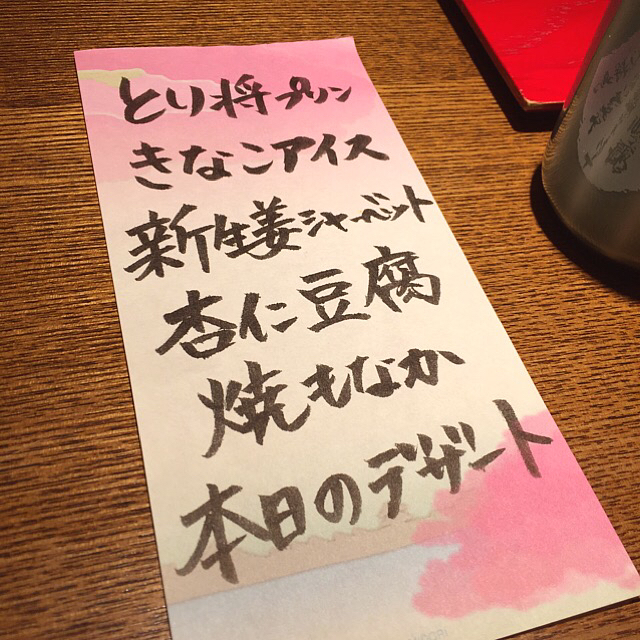 とり将プリン
きなこアイス
新生姜シャーベット
杏仁豆腐
焼もなか
本日のデザート